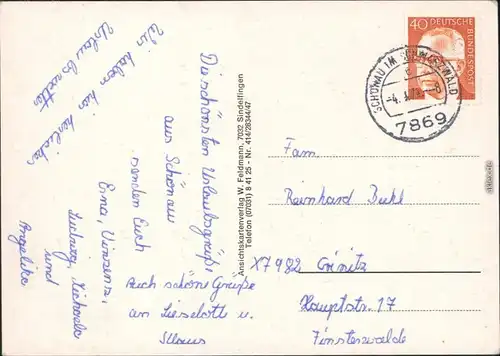 Wir haben hier herrliches
Urlaubswetter
Die schönsten Urlaubsgrüße
aus Schönau
senden Euch
Erna, Vinzenz,
Ludwig, Michaela
und
Angelika
Auch schöne Grüße
an Lieselott u.
Klaus
Ansichtskartenverlag W. Feldmann, 7032 Sindelfingen
Telefon (07031) 8 41 25 - Nr. 414/28344/47
40 DEUTSCHE
BUNDESPOST
SCHÖNAU IM SCHWARZWALD
7869
Fam.
Reinhard Buhl
X7982 Crinitz
Hauptstr. 17
Finsterwalde